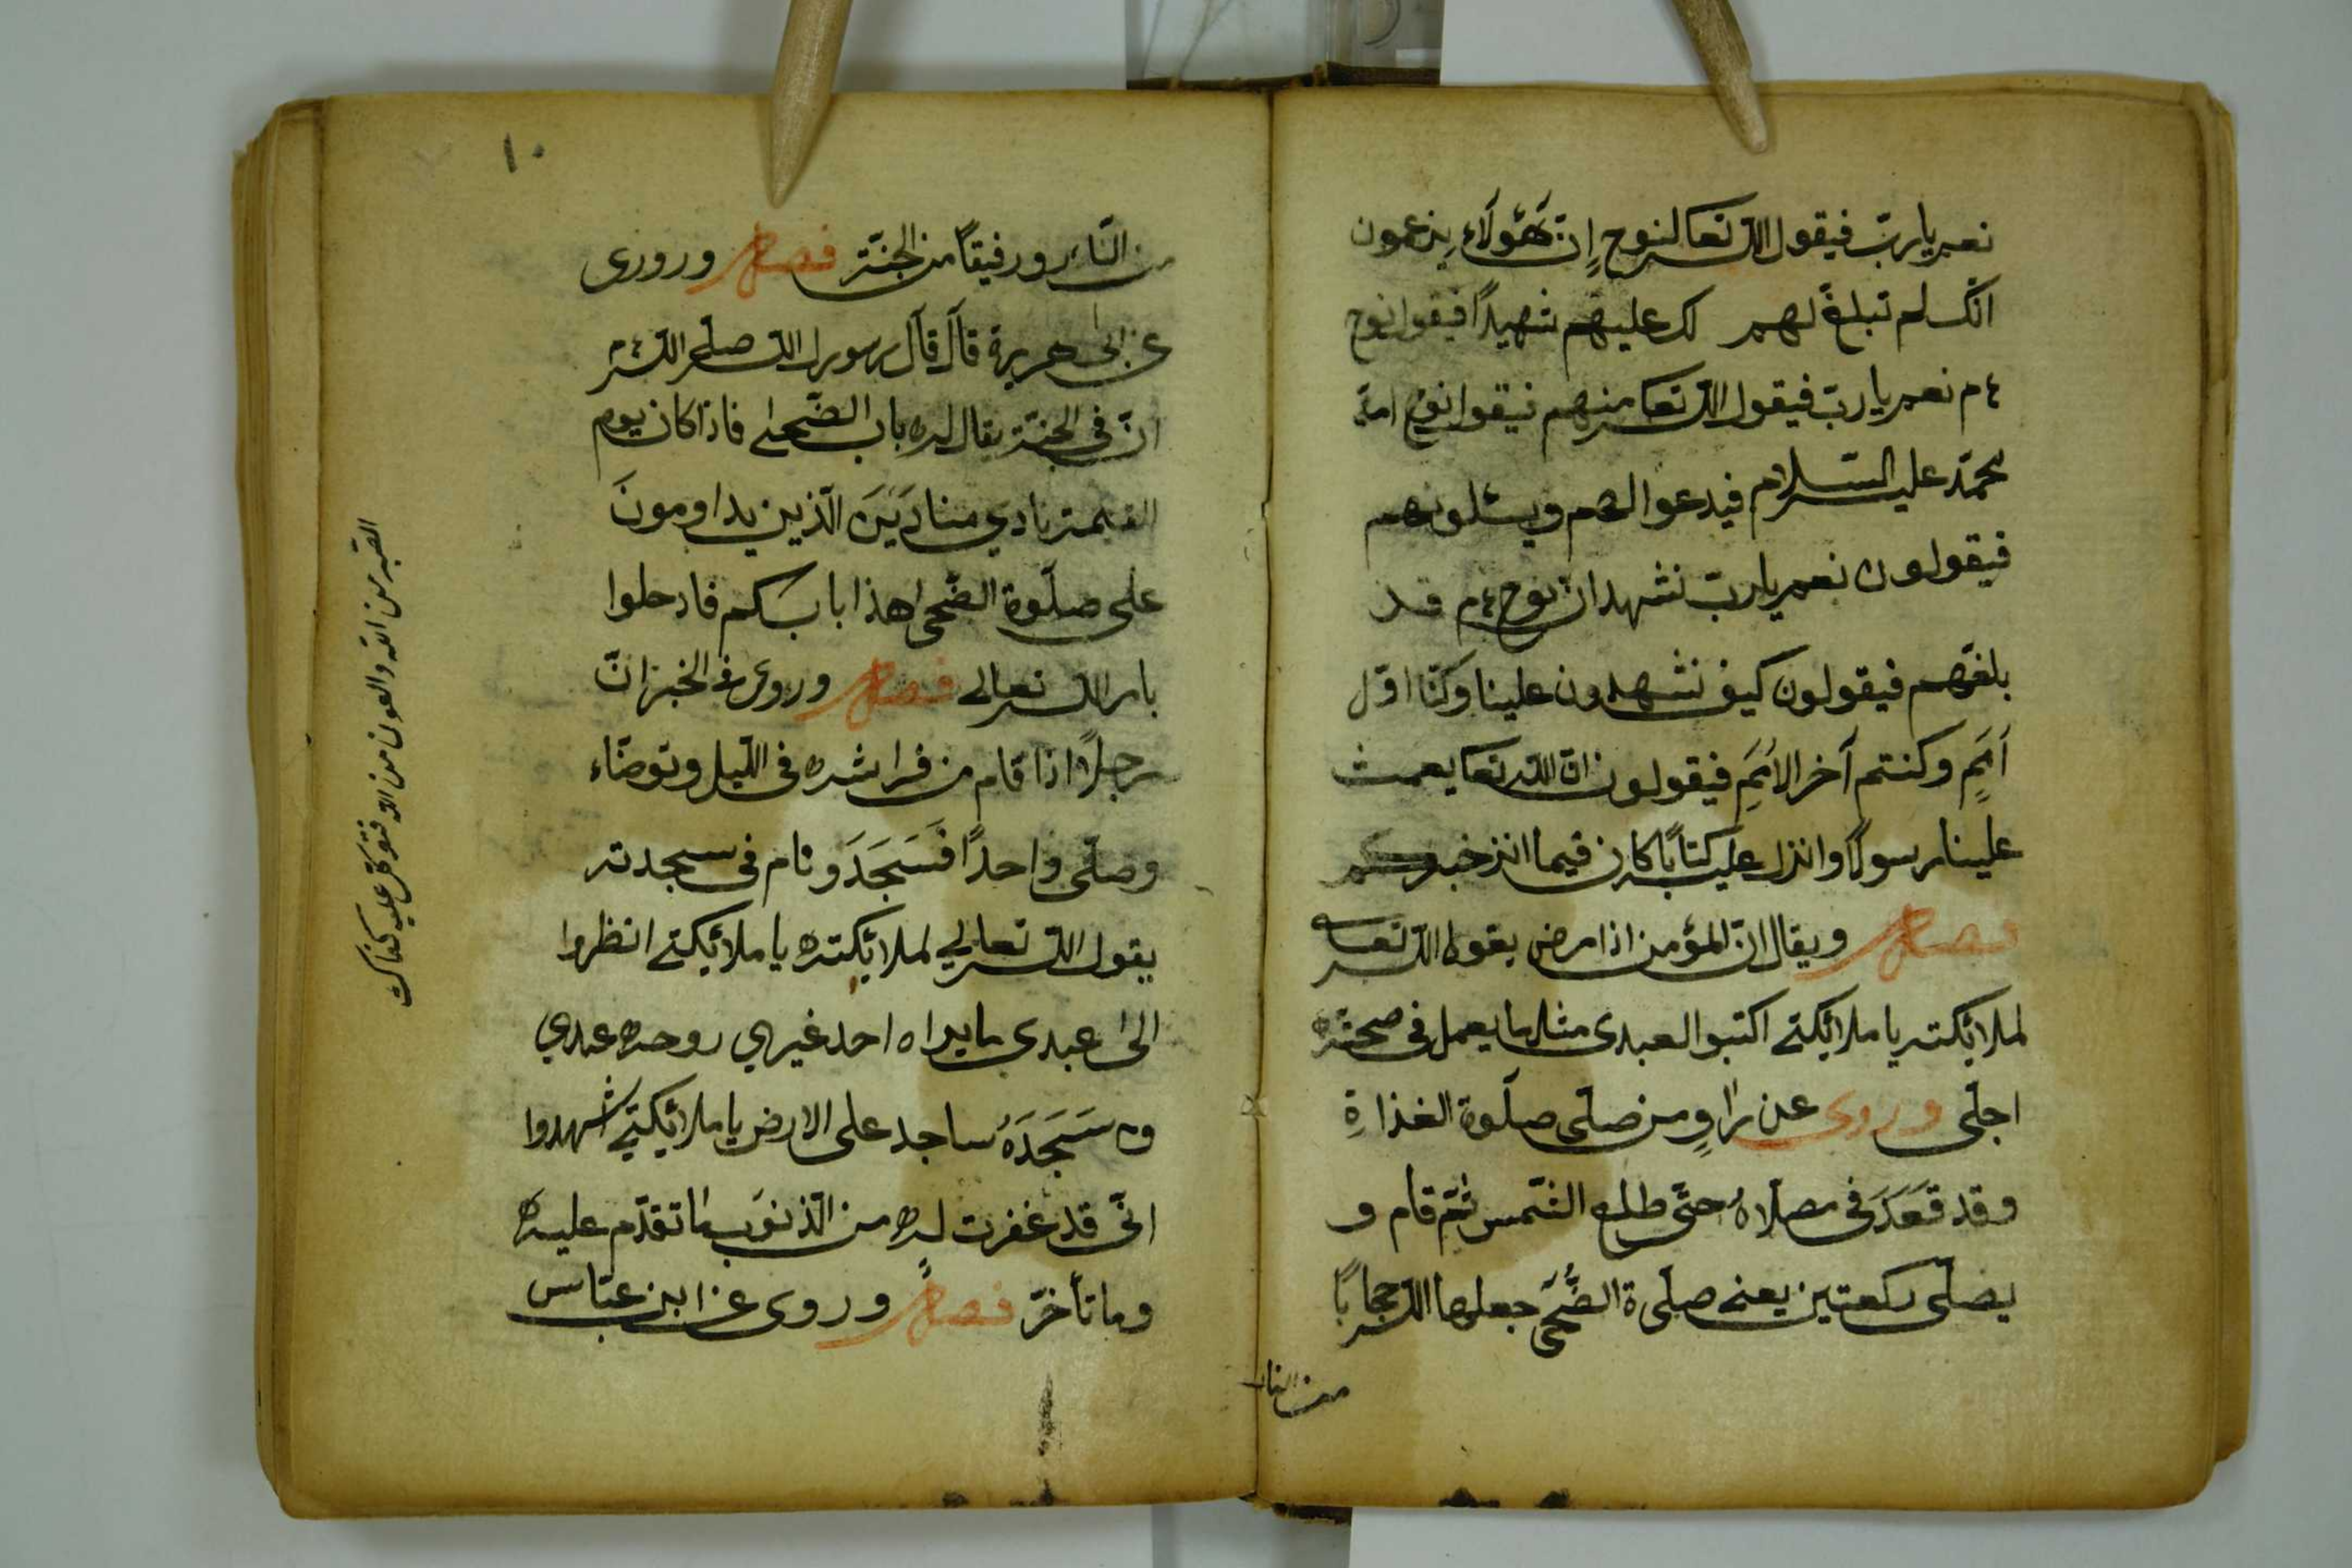 نعم يا ربّ فيقول الله تعا لنوح إنّ هَؤلَاء يزعمون
انّك لم تبلغ لهم لك عليهم شهيدًا فيقول نوح
ع م نعم يا ربّ فيقول الله تعا منهم فيقول نوح امة
محمّد عليه السّلام فيدعوا لهم ويسئلونهم
فيقولون نعم يا ربّ نشهد انّ نوح ع م قد
بلغهم فيقولون كيف تشهدون علينا وكنّا اوّل
اُمَمٍ وكنتم آخر الاُمَمِ فيقولون انّ الله تعا بعث
علينا رسولًا وانزل عليه كتابًا كان فيما انزل خبركم
فصل ويقال انّ المؤمن اذا مرض يقول الله تعا
لملائكته يا ملائكتي اكتبوا لعبدى مثل ما يعمل فى صحته
اجلى وروى عن راوٍ من صلّى صلٰوة الغذاةِ
وقد قَعَدَ فى مصلّاهُ حتّى طلع الشّمس ثمّ قام و
يصلّى ركعتين يعنى صلٰوة الضُّحَى جعلها الله حجابًا
من النار
١٠
من النّار ورفيقًا من الجنّة فصل وروى
عن ابى هريرة قال قال رسول الله صلّى الله ع م
انّ فى الجنّة يقال له باب الضّحى فاذا كان يوم
القيمة ينادي مناد اَيْنَ الّذين يداومونَ
على صلٰوة الضّحى هذا بابكم فادخلوا
بامر الله تعالى فصل وروى فى الخبر انّ
رجلًا اذا قام من فراشه فى اللّيل وتوضّاء
وصلّى واحدًا فَسَجَدَ ونام فى سجدته
يقول الله تعالي لملائكته يا ملائكتي انظروا
الى عبدى ما يراه احد غيري روحه عندي
وسَجَدَهُ ساجد على الارض يا ملائكتي اشهدوا
انّى قد غفرت له من الذّنوب ما تقدّم عليه
وما تأخّر فصل وروى عن ابن عبّاس
من الله والعون من الله فتوكل عليه كفاك